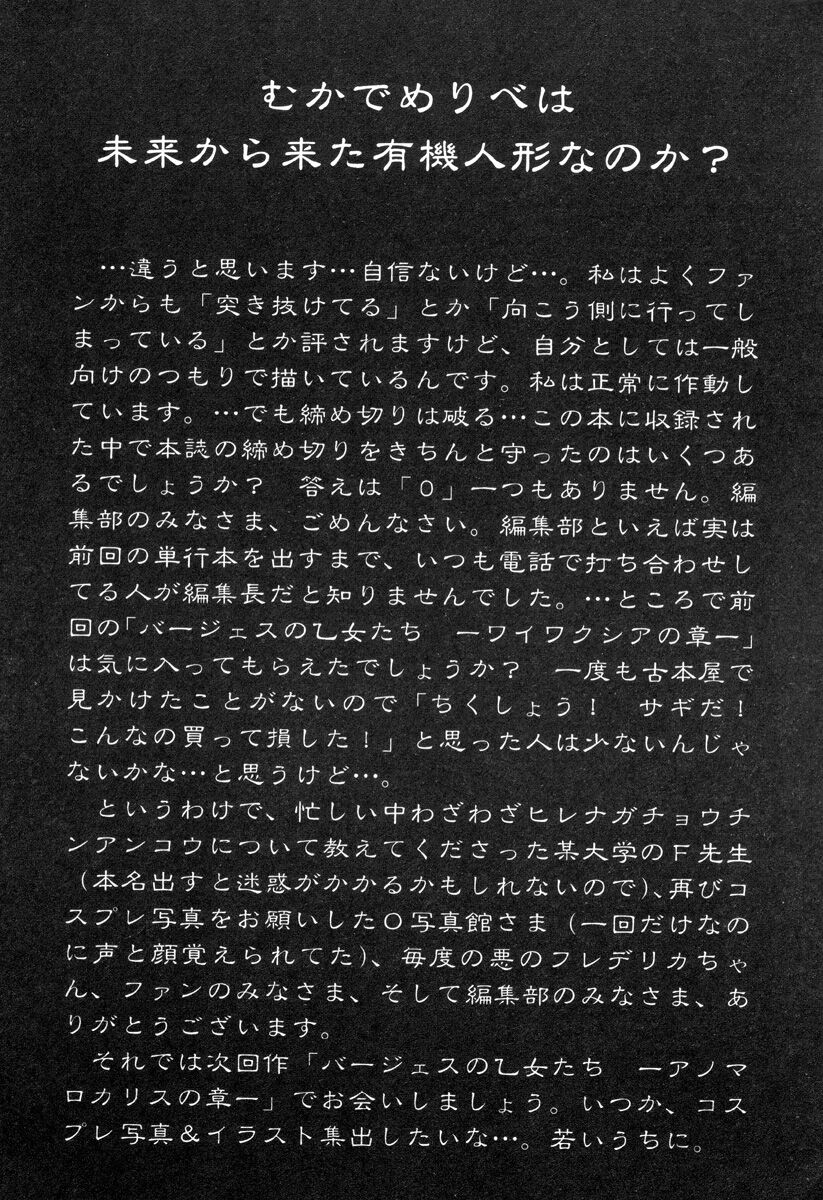 むかでめりべは
未来から来た有機人形なのか？
…違うと思います…自信ないけど…。私はよくファ
ンからも「突き抜けてる」とか「向こう側に行ってし
まっている」とか評されますけど、自分としては一般
向けのつもりで描いているんです。私は正常に作動し
ています。…でも締め切りは破る…この本に収録され
た中で本誌の締め切りをきちんと守ったのはいくつあ
るでしょうか？　答えは「０」一つもありません。編
集部のみなさま、ごめんなさい。編集部といえば実は
前回の単行本を出すまで、いつも電話で打ち合わせし
てる人が編集長だと知りませんでした。…ところで前
回の「バージェスの乙女たち　ーワイワクシアの章ー」
は気に入ってもらえたでしょうか？　一度も古本屋で
見かけたことがないので「ちくしょう！　サギだ！
こんなの買って損した！」と思った人は少ないんじゃ
ないかな…と思うけど…。
というわけで、忙しい中わざわざヒレナガチョウチ
ンアンコウについて教えてくださった某大学のＦ先生
（本名出すと迷惑がかかるかもしれないので）、再びコ
スプレ写真をお願いしたＯ写真館さま（一回だけなの
に声と顔覚えられてた）、毎度の悪のフレデリカちゃ
ん、ファンのみなさま、そして編集部のみなさま、あ
りがとうございます。
それでは次回作「バージェスの乙女たち　ーアノマ
ロカリスの章ー」でお会いしましょう。いつか、コス
プレ写真＆イラスト集出したいな…。若いうちに。